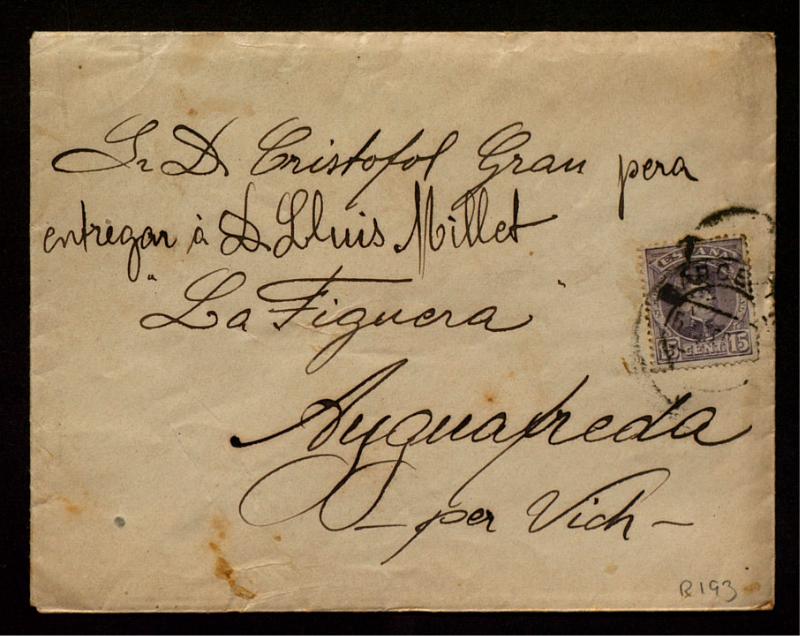 Sr D. Cristofol Grau pera
entregar á D. Lluis Millet
"La Figuera"
Ayguafreda
- per Vich -
ESPAÑA
15 CENT 15
R193